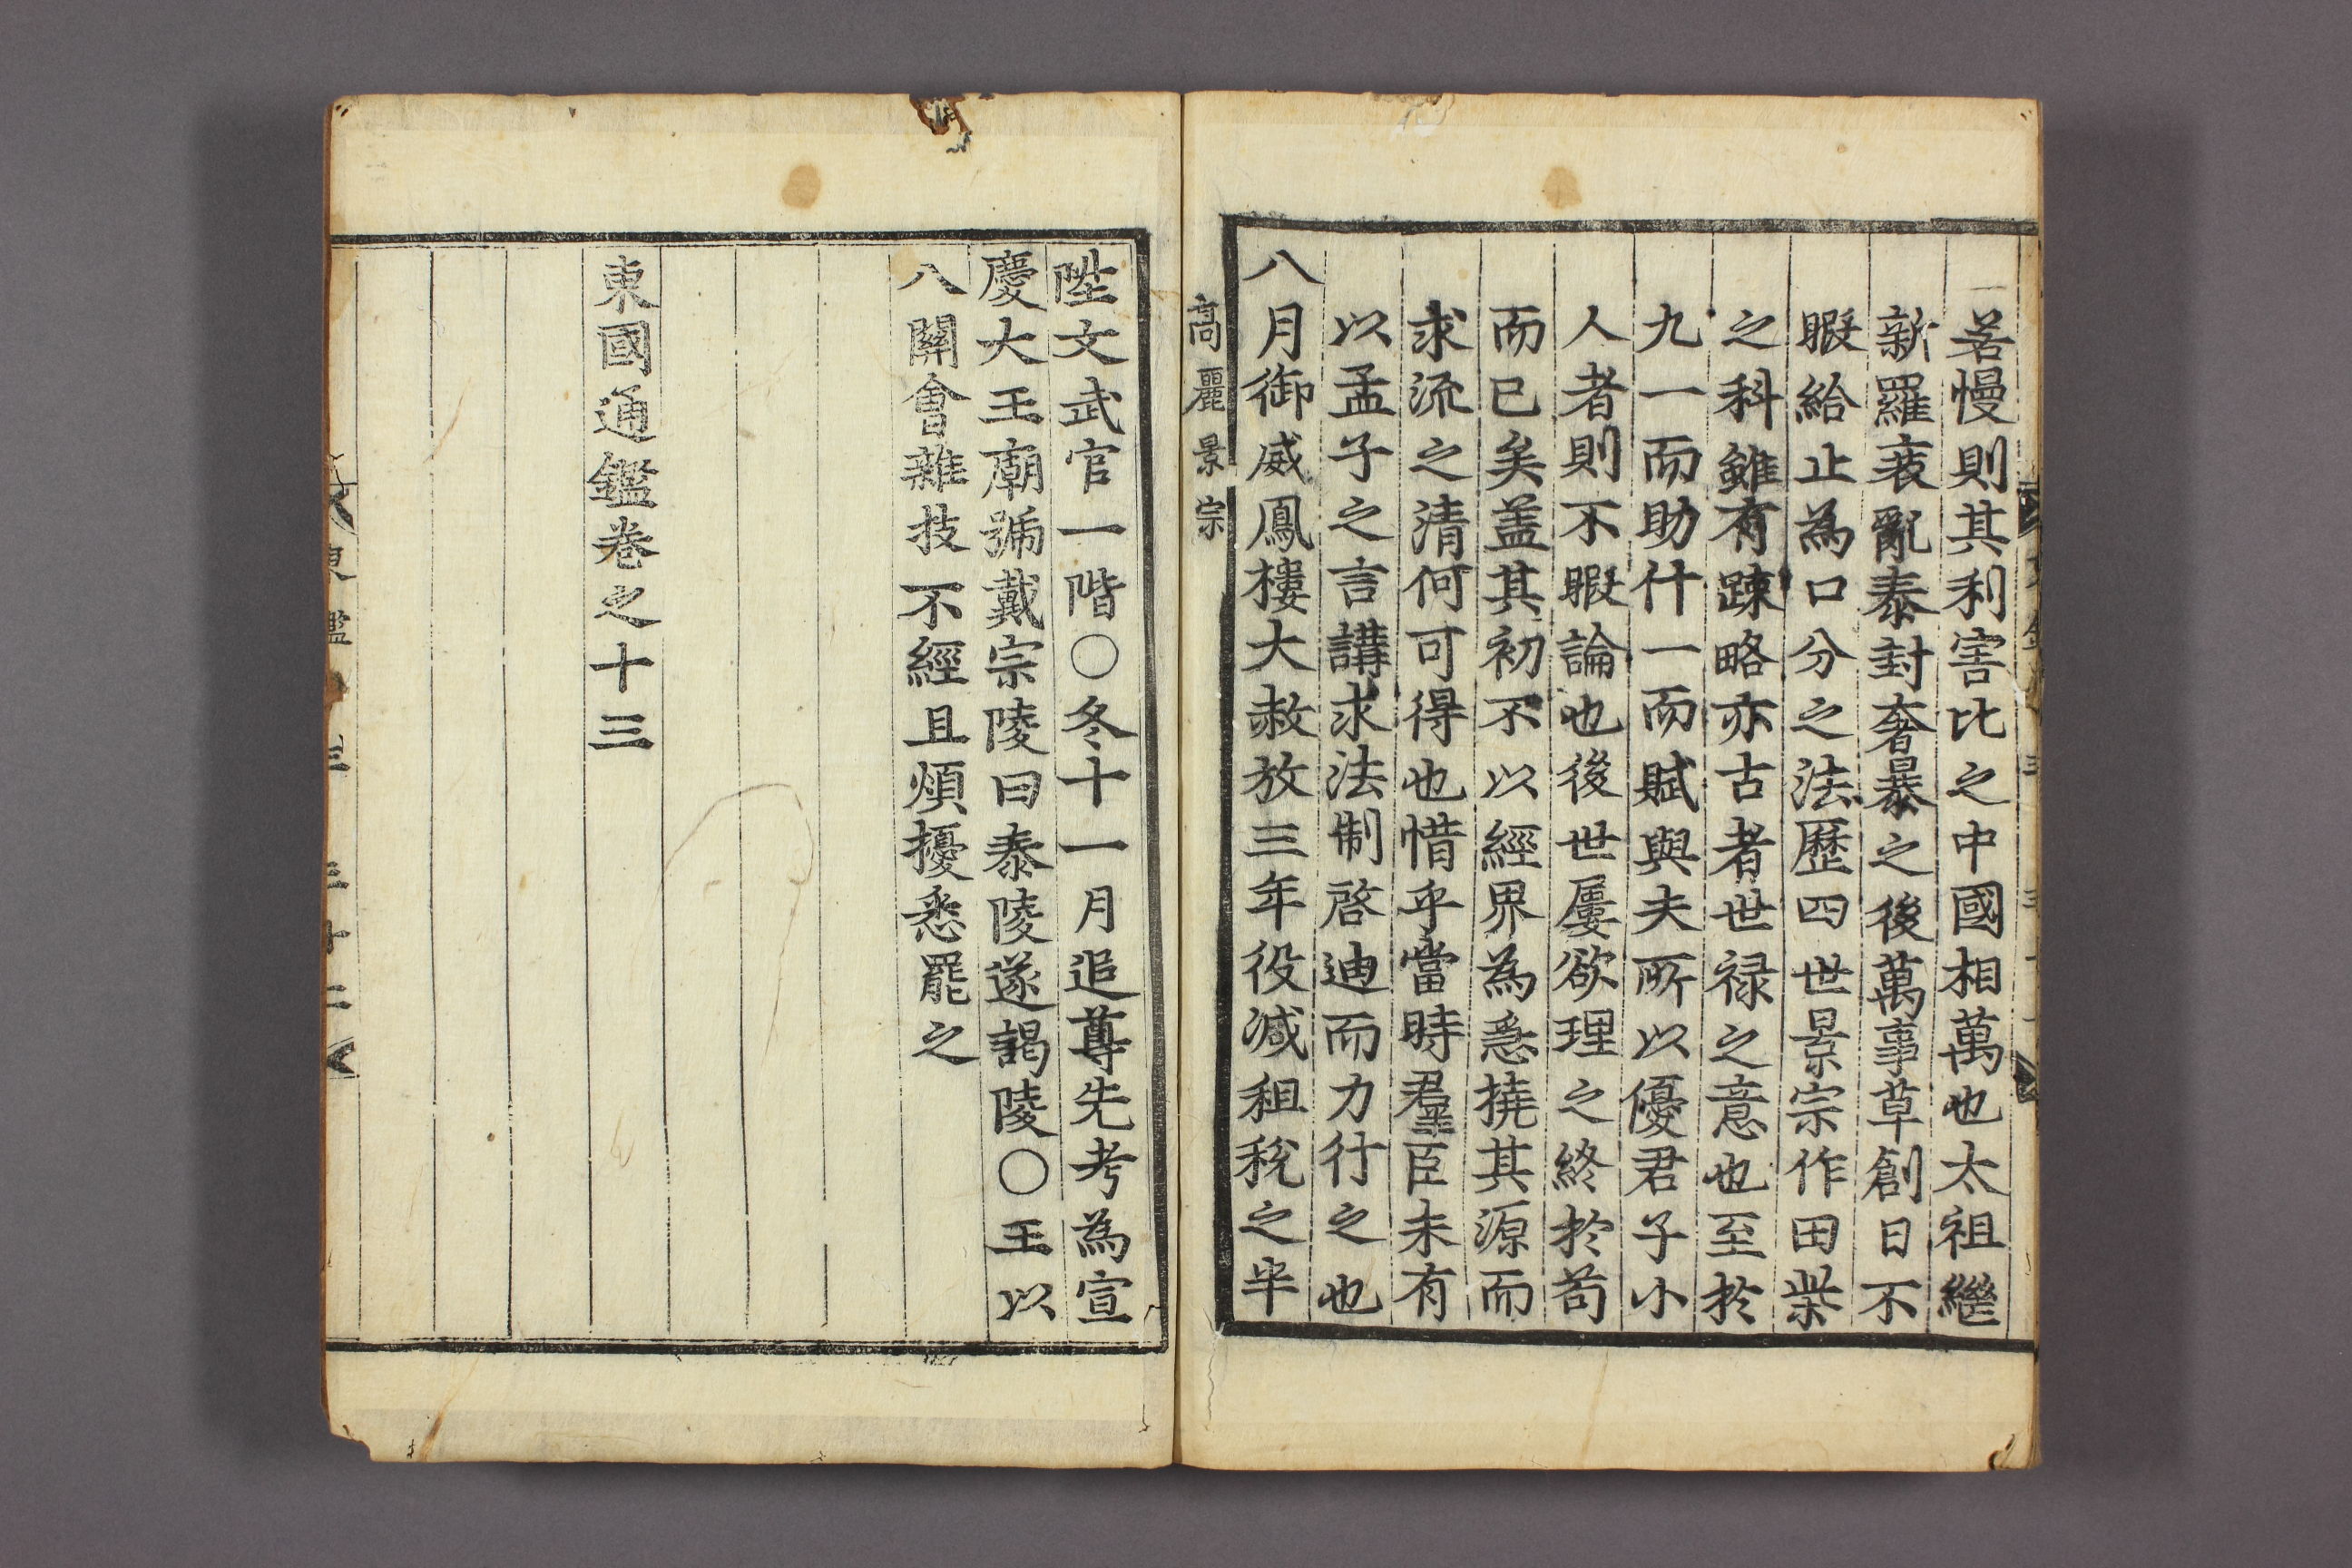 若慢則其利害比之中國相萬也太祖繼
新羅衰亂泰封奢暴之後萬事草創日不
暇給止為口分之法歷四世景宗作田柴
之科雖有踈略亦古者世禄之意也至於
九一而助什一而賦與夫所以優君子小
人者則不暇論也後世屢欲理之終於苟
而已矣盖其初不以經界為急撓其源而
求流之清何可得也惜乎當時羣臣未有
以孟子之言講求法制啓迪而力行之也
八月御威鳳樓大赦放三年役減租稅之半
高麗景宗
陞文武官一階○冬十一月追尊先考為宣
慶大王廟號戴宗陵曰泰陵遂謁陵○王以
八關會雜技不經且煩擾悉罷之
東國通鑑卷之十三
三十二